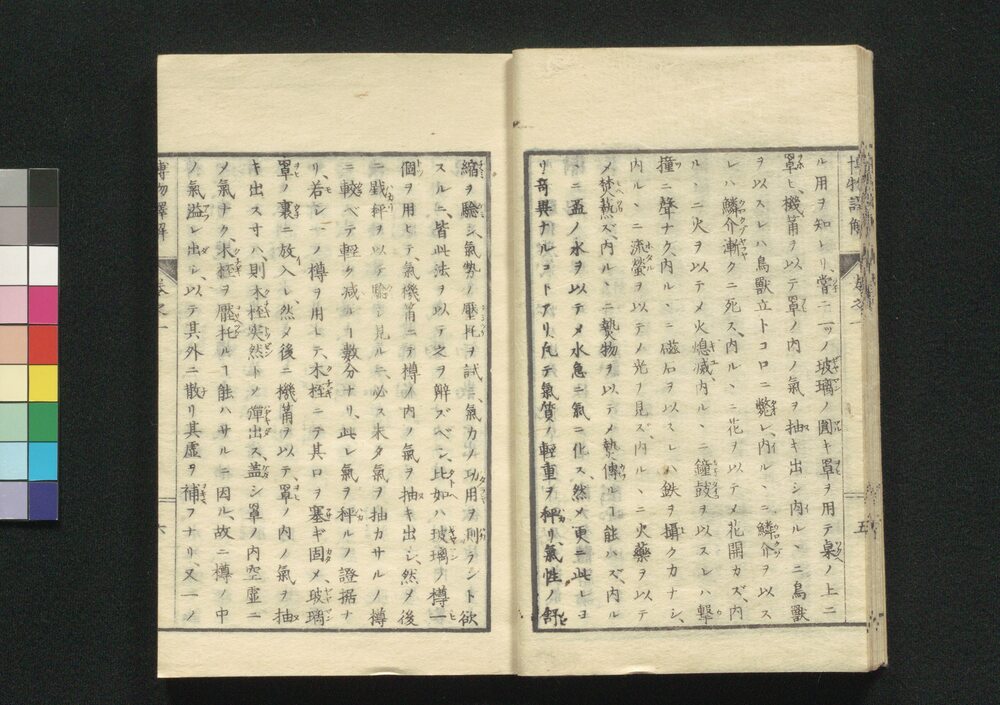 博物譯解 卷之一 五
ル用ヲ知レリ、嘗ニ一ツノ玻璃ノ圓キ罩ヲ用テ桌ノ上ニ
罩ヒ、機筩ヲ以テ罩ノ内ノ氣ヲ抽キ出シ内ルヽニ鳥獸
ヲ以スレハ鳥獸立トコロニ斃レ、内ルヽニ鱗介ヲ以ス
レハ鱗介漸クニ死ス、内ルヽニ花ヲ以テメ花開カズ、内
ルヽニ火ヲ以テメ火熄滅内ルヽニ鐘鼓ヲ以スレハ擊
撞ニ聲ナク、内ルヽニ磁石ヲ以スレハ鉄ヲ攝クカナシ、
内ルヽニ流螢ヲ以テメ光ヲ見ズ内ルヽニ火藥ヲ以テ
メ焚爇ズ、内ルヽニ熱物ヲ以テメ熱傳ルヿ能ハズ、内ル
ヽニ盂ノ水ヲ以テメ水急ニ氣ニ化ス、然メ更ニ此レヨ
リ奇異ナルコトアリ、凡テ氣質ノ輕重ヲ秤リ、氣性ノ舒
縮ヲ驗シ氣勢ノ壓托ヲ試、氣力ノ功用ヲ則ラント欲
スルニ、皆此法ヲ以テ之ヲ觧ズベシ、比如ハ玻璃ノ樽一
個ヲ用ヒテ、氣機筩ニテ樽ノ内ノ氣ヲ抽キ出シ、然メ後
ニ戥秤ヲ以テ驗シ見ルニ、必ス未タ氣ヲ抽カサルノ樽
ニ較ベテ輕ク減ルヿ數分ナリ、此レ氣ヲ秤ルノ證据ナ
リ、若シ一ノ樽ヲ用レ、木栓ニテ其口ヲ塞ギ固メ、玻璃
罩ノ裏ニ放入レ、然メ後ニ機筩ヲ以テ罩ノ内ノ氣ヲ抽
キ出ス寸ハ、則木栓突然トメ彈出ス、蓋シ罩ノ内空虛ニ
メ氣ナク、木栓ヲ壓托ルヿ能ハサルニ因ル、故ニ樽ノ中
ノ氣溢レ出シ、以テ其外ニ散リ其虛ヲ補フナリ、又一ノ
博物譯解 卷之一 六